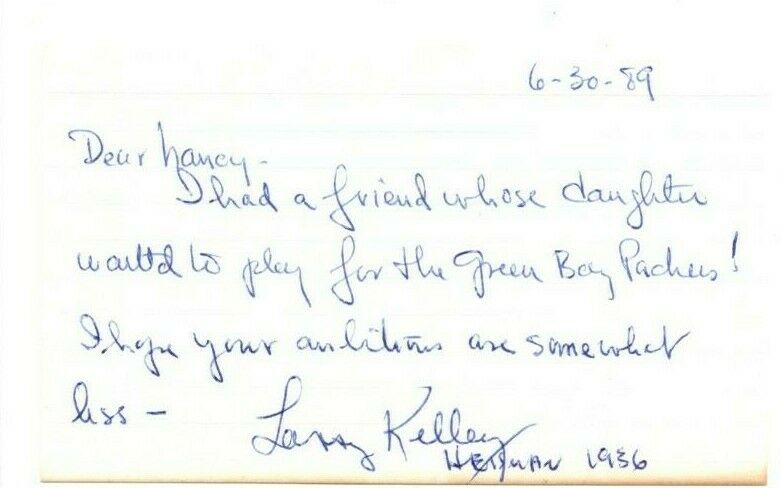 6-30-89
Dear Nancy -
I had a friend whose daughter
wanted to play for the Green Bay Packers!
I hope your ambitions are somewhat
less -
Larry Kelley
HEISMAN 1936